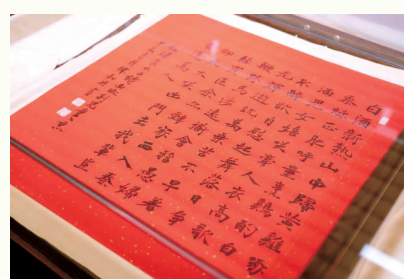 白酒新熟山中歸黃雞啄
黍秋正肥呼童烹雞酌白
酒兒女嬉笑牽人衣高歌
取醉欲自慰起舞落日爭
光輝遊說萬乘苦不早著
鞭跨馬涉遠道會稽愚婦
輕買臣余亦辭家西入秦
仰天大笑出門去我輩豈